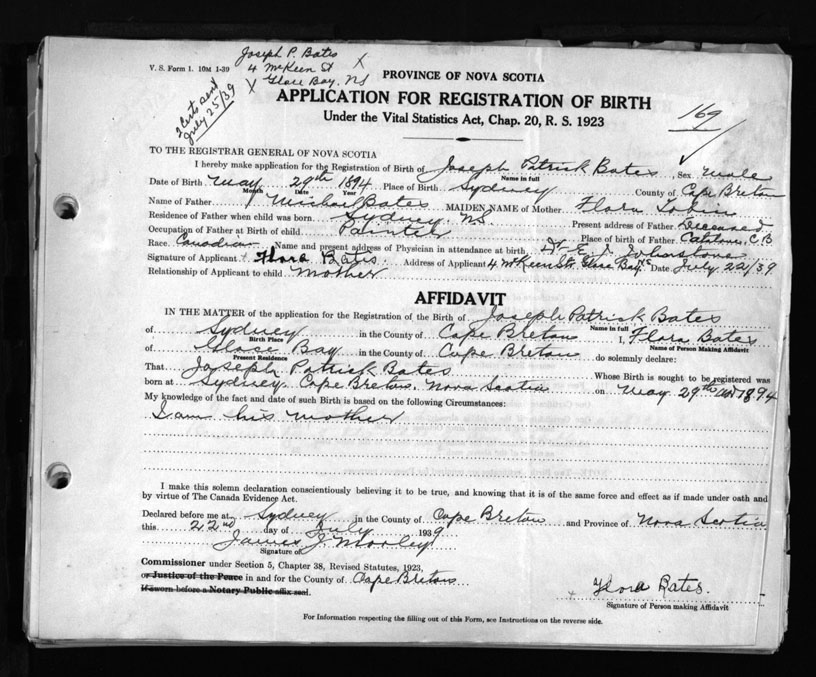 Joseph P. Bates
V. S. Form 1. 10M 1-39
4 McKeen St X
X Glace Bay, NS
PROVINCE OF NOVA SCOTIA
APPLICATION FOR REGISTRATION OF BIRTH
169
July 25/39
Under the Vital Statistics Act, Chap. 20, R. S. 1923
TO THE REGISTRAR GENERAL OF NOVA SCOTIA
I hereby make application for the Registration of Birth of Joseph Patrick Bates, Sex male
Name in full
Date of Birth May 29th 1894 Place of Birth Sydney County of Cape Breton
Month Date Year
Name of Father Michael Bates MAIDEN NAME of Mother Flora Tobin
Residence of Father when child was born Sydney NS Present address of Father Deceased
Occupation of Father at Birth of child Painter Place of birth of Father Catalone, C.B
Race Canadian Name and present address of Physician in attendance at birth Dr. E. J. Johnstone
Signature of Applicant Flora Bates. Address of Applicant 4 McKeen St. Glace Bay NS Date July 22/39
Relationship of Applicant to child mother
AFFIDAVIT
IN THE MATTER of the application for the Registration of the Birth of Joseph Patrick Bates
Name in full
of Sydney in the County of Cape Breton I, Flora Bates
Birth Place Name of Person Making Affidavit
of Glace Bay in the County of Cape Breton do solemnly declare:
Present Residence
That Joseph Patrick Bates Whose Birth is sought to be registered was
born at Sydney. Cape Breton. Nova Scotia on May 29th AD 1894
My knowledge of the fact and date of such Birth is based on the following Circumstances:
I am his mother
I make this solemn declaration conscientiously believing it to be true, and knowing that it is of the same force and effect as if made under oath and
by virtue of The Canada Evidence Act.
Declared before me at Sydney in the County of Cape Breton and Province of Nova Scotia
this 22nd day of July 1939
James J. Morley
Signature of
Commissioner under Section 5, Chapter 38, Revised Statutes, 1923,
or Justice of the Peace in and for the County of Cape Breton
If sworn before a Notary Public affix seal.
x Flora Bates.
Signature of Person making Affidavit
For Information respecting the filling out of this Form, see Instructions on the reverse side.